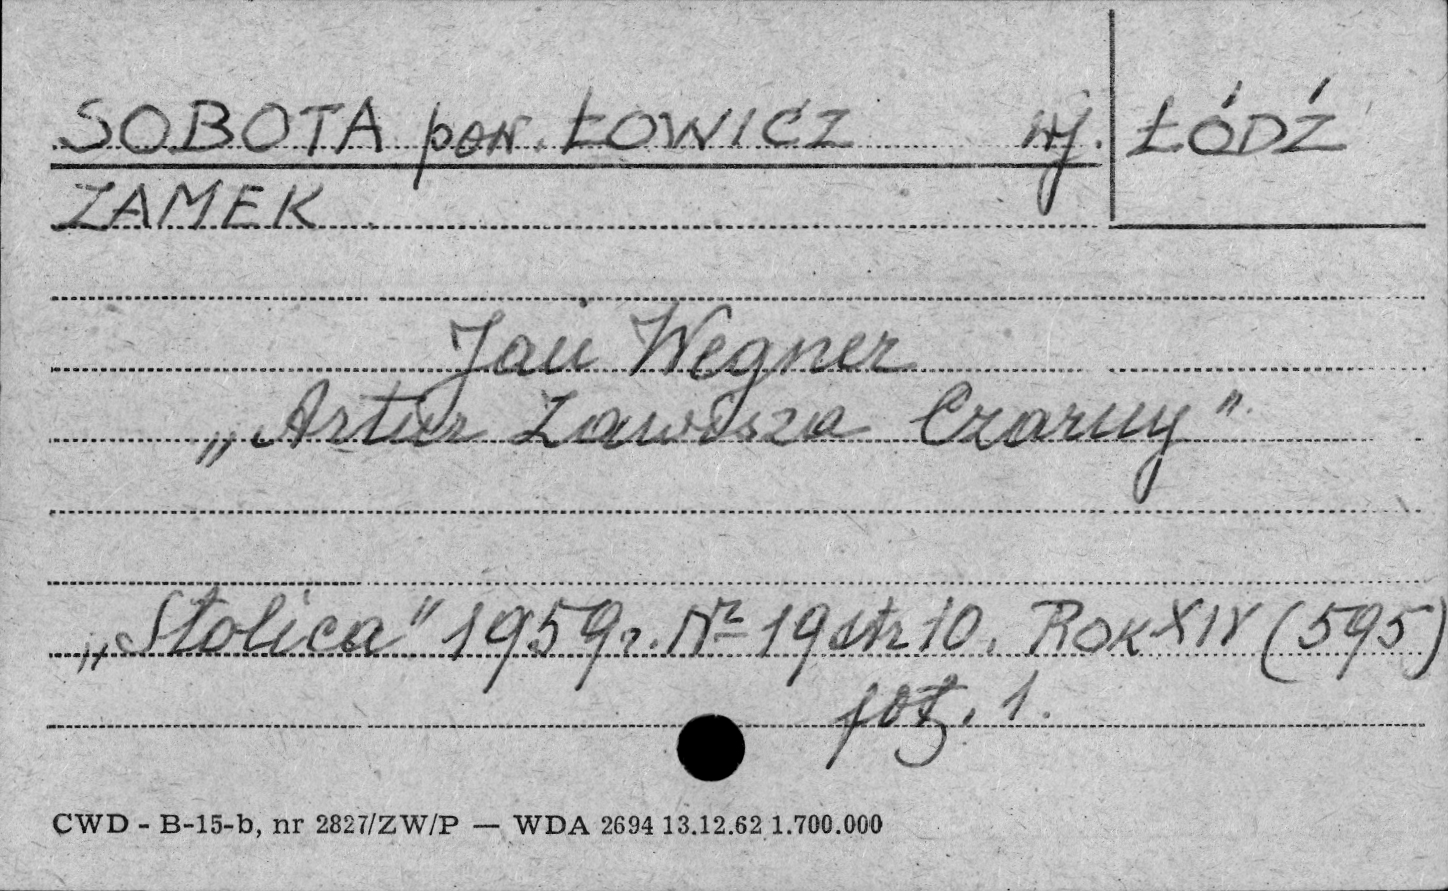 SOBOTA pow. ŁOWICZ wj. ŁÓDŹ
ZAMEK
Jan Wegner
„Artur Zawisza Czarny"
„Stolica" 1959 r. Nº 19 str 10. ROK XIV (595)
fot. 1.
CWD - B-15-b, nr 2827/ZW/P — WDA 2694 13.12.62 1.700.000